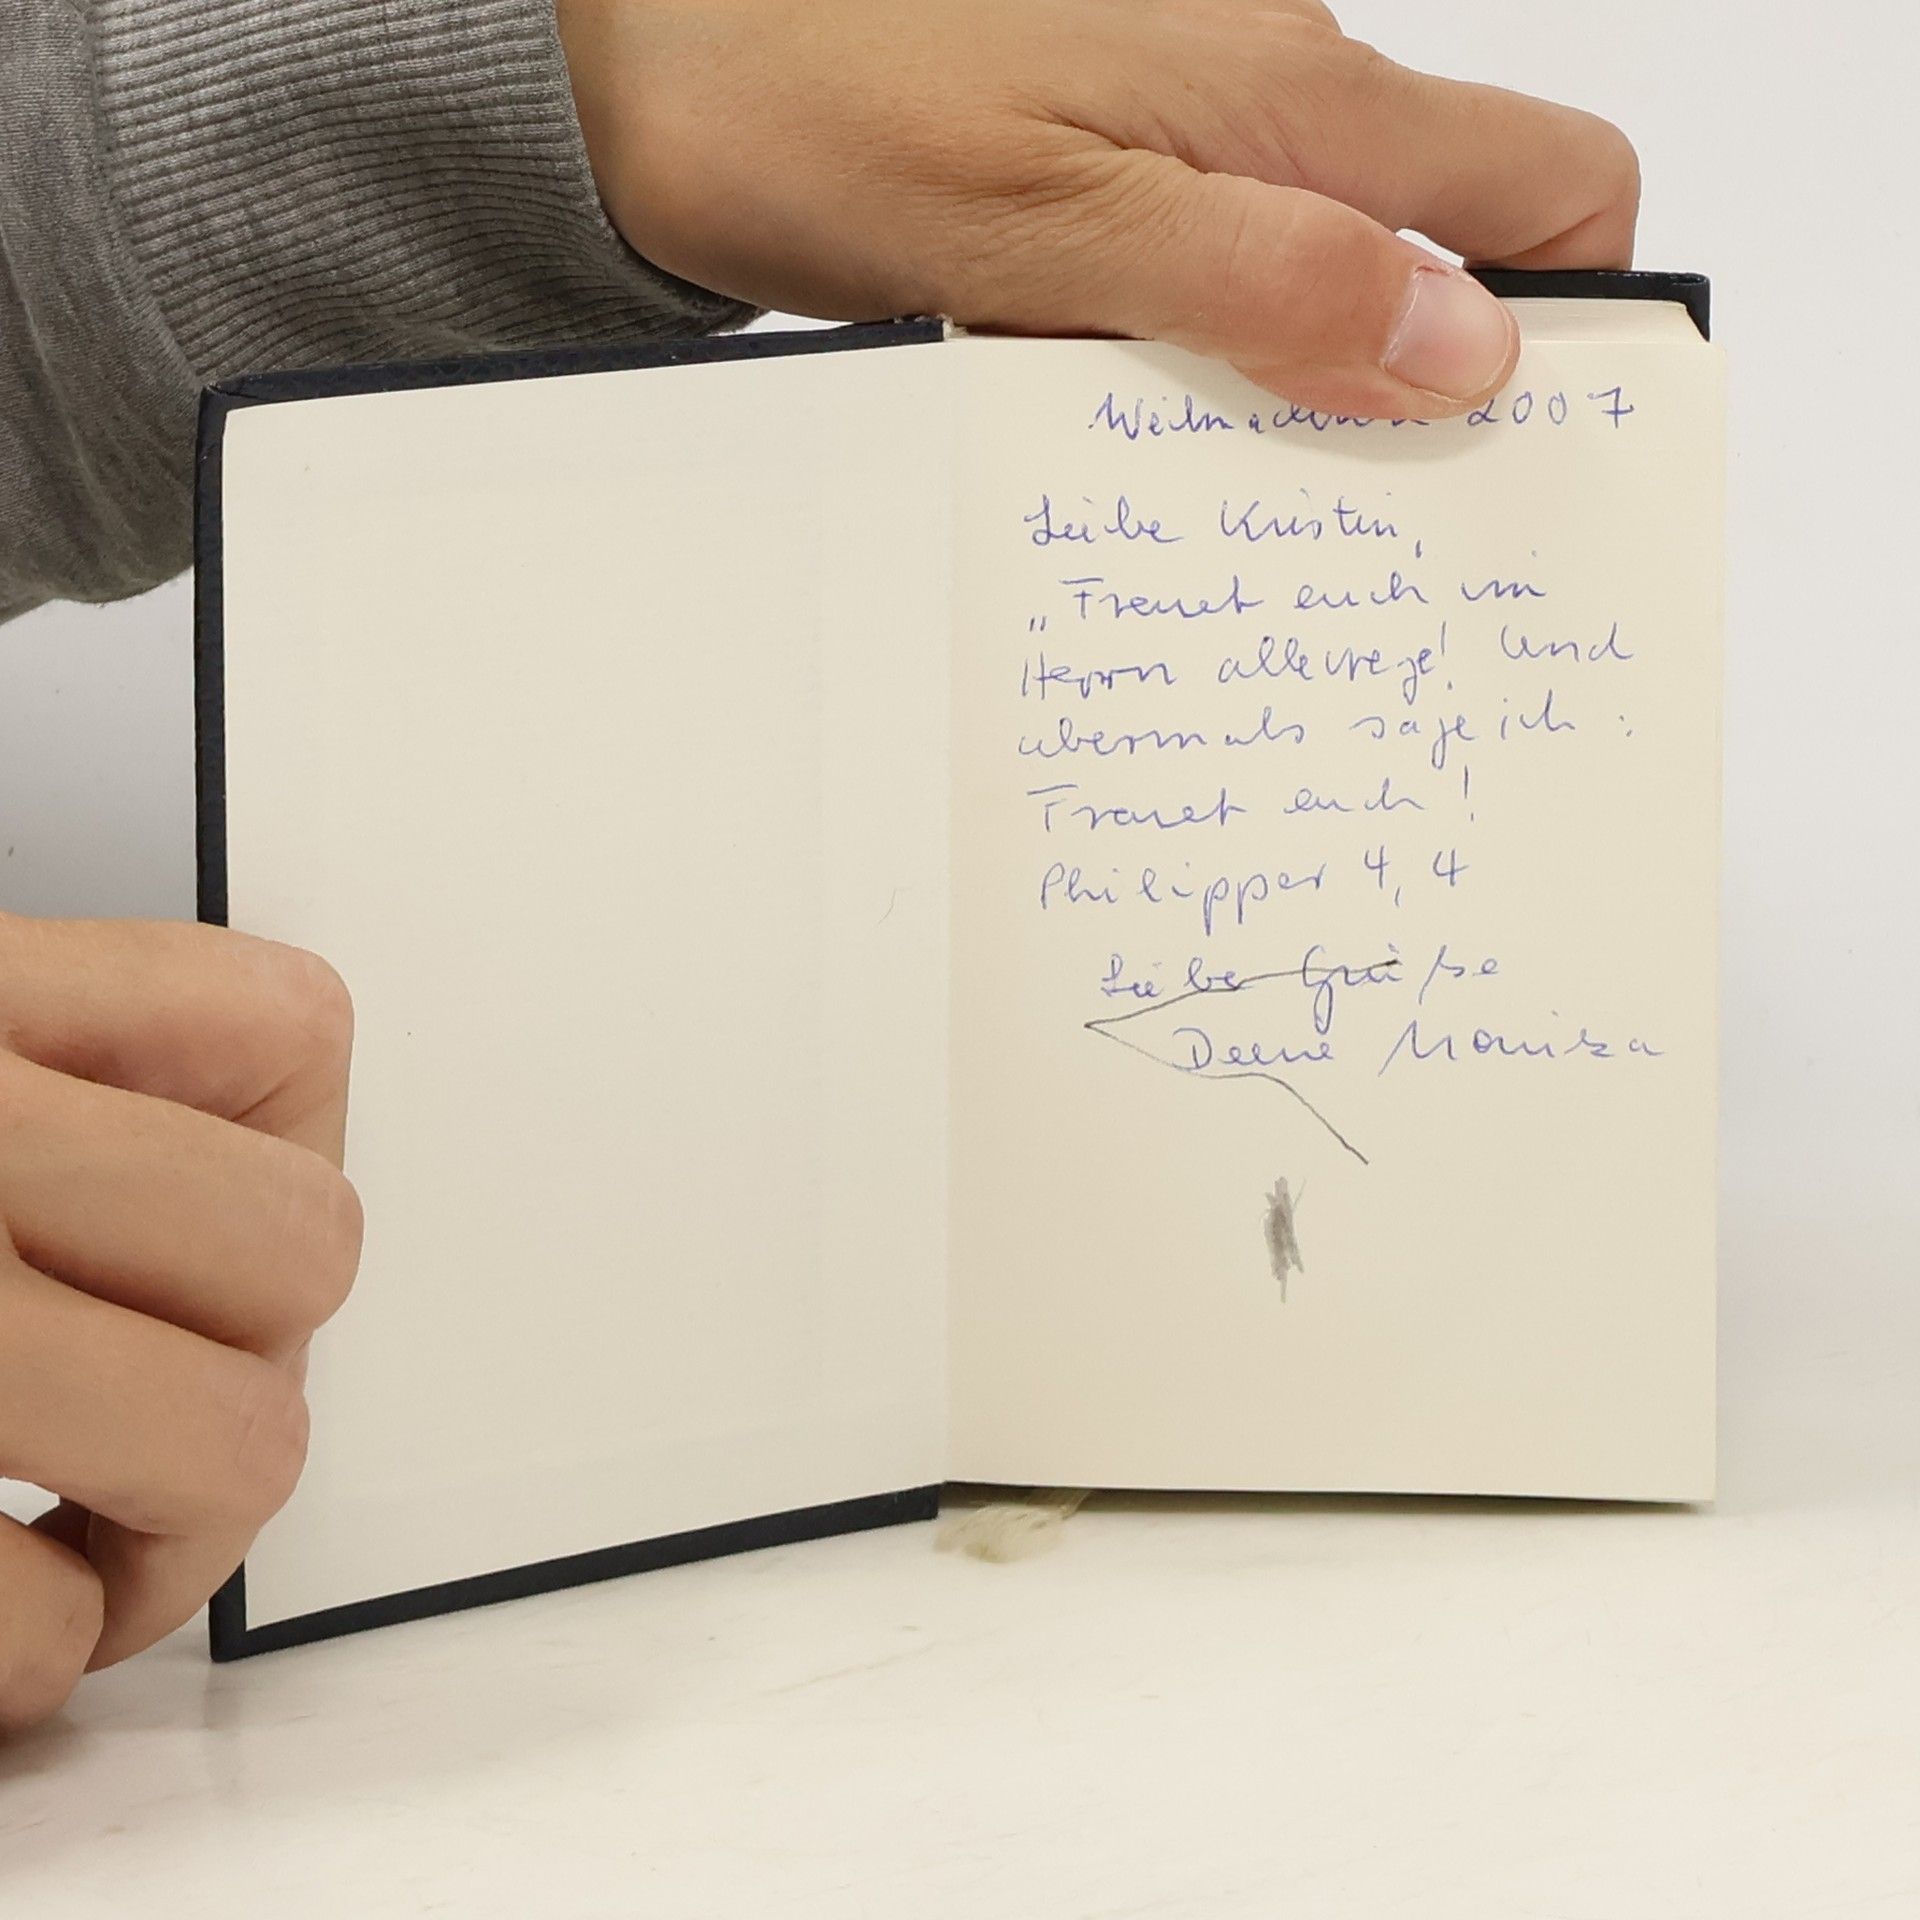 Weihnachten 2007
Liebe Kristin,
„Freuet euch im
Herrn allewege! Und
abermals sage ich:
Freuet euch!
Philipper 4,4
Liebe Grüße
Deine Monika